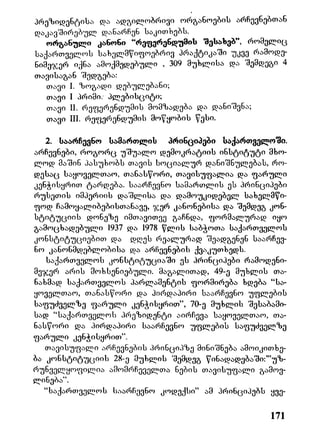 პრეზიდენტისა და ადგილობრივი ორგანოების არჩევნებთან
დაკავშირებულ დანარჩენ საკითხებს.
ორგანული კანონი “რეფერენდუმის შესახებ”, რომელიც
საქართველოს სახელმწიფოებრივ პრაქტიკაში უკვე რამოდე-
ნიმეჯერ იქნა ამოქმედებული , 309 მუხლისა და შემდეგი 4
თავისაგან შედგება:
თავი I. ზოგადი დებულებანი;
თავი I პრიმი. პლებისციტი;
თავი II. რეფერენდუმის მომზადება და დანიშვნა;
თავი III. რეფერენდუმის მოწყობის წესი.
2. საარჩევნო სამართლის პრინციპები საქართველოში.
არჩევნები, როგორც უშუალო დემოკრატიის ინსტიტუტი მხო-
ლოდ მაშინ პასუხობს თავის სოციალურ დანიშნულებას, რო-
დესაც საყოველთაო, თანასწორი, თავისუფალია და ფარული
კენჭისყრით ტარდება. საარჩევნო სამართლის ეს პრინციპები
რუსეთის იმპერიის დაშლისა და დამოუკიდებელ სახელმწი-
ფოდ ჩამოყალიბებისთანავე, ჯერ კანონებისა და შემდეგ კონ-
სტიტუციის დონეზე იმთავითვე გაჩნდა, ფორმალურად იყო
გამოცხადებული 1937 და 1978 წლის საბჭოთა საქართველოს
კონსტიტუციებით და დღეს რეალურად შეადგენენ საარჩევ-
ნო კანონმდებლობისა და არჩევნების ქვაკუთხედს.
საქართველოს კონსტიტუციაში ეს პრინციპები რამოდენი-
მეჯერ არის მოხსენიებული. მაგალითად, 49-ე მუხლის თა-
ნახმად საქართველოს პარლამენტის ფორმირება ხდება “სა-
ყოველთაო, თანასწორი და პირდაპირი საარჩევნო უფლების
საფუძველზე ფარული კენჭისყრით”, 70-ე მუხლის შესაბამი-
სად “საქართველოს პრეზიდენტი აირჩევა საყოველთაო, თა-
ნასწორი და პირდაპირი საარჩევნო უფლების საფუძველზე
ფარული კენჭისყრით”.
თავისუფალი არჩევნების პრინციპზე მინიშნება ამოიკითხე-
ბა კონსტიტუციის 28-ე მუხლის შემდეგ წინადადებაში:”უზ-
რუნველყოფილია ამომრჩეველთა ნების თავისუფალი გამოვ-
ლინება”.
“საქართველოს საარჩევნო კოდექსი” ამ პრინციპებს ყვე-
171